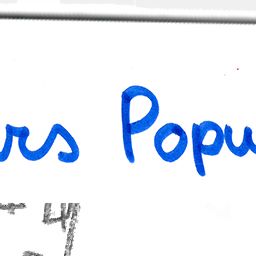 rs Popu